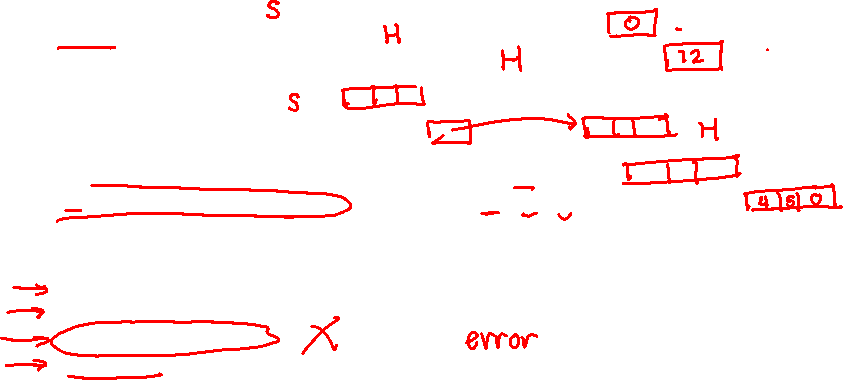 S
H
0
H
12
S
H
4 5 0
X
error